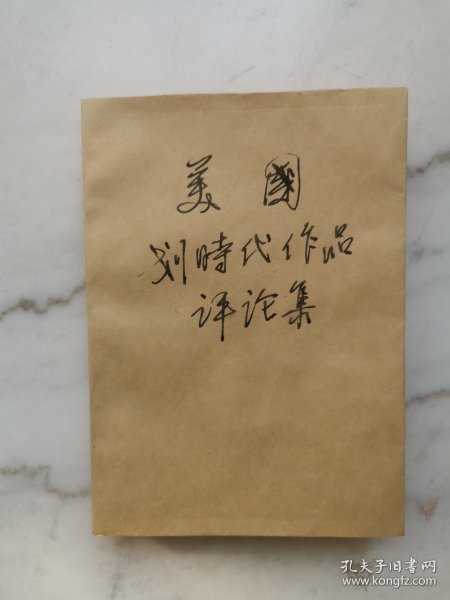 美國
划時代作品
评论集
孔夫子旧书网
www.kongfz.com